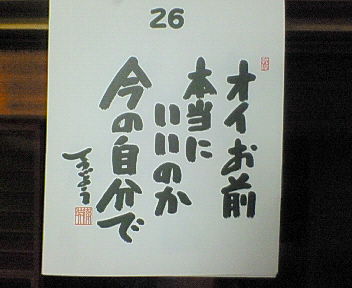 26
オイお前
本当に
いいのか
今の自分で